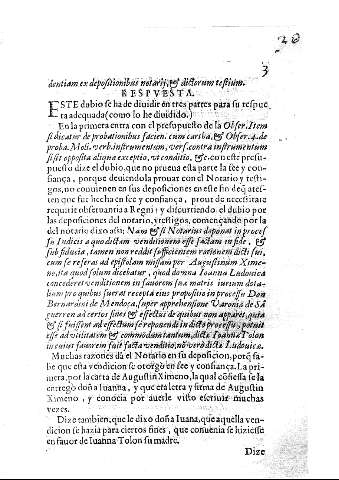 28
3
dentiam ex depositionibus notarij, & dictorum testium.
RESPVESTA.
ESTE dubio se ha de diuidir en tres partes para su respue
sta adequada (como lo he diuidido.)
En la primera entra con el presupuesto de la Obser. Item
si dicator de probationibus facien. cum carta, & Obser. 4. de
proba. Moli. verb. instrumentum, vers. contra instrumentum
si sit opposita aliqua exceptio, vt conditio, &c. con este presu-
puesto dize el dubio, que no prueua esta parte la fee y con-
fiança, porque deuiendola prouar con el Notario y testi-
gos, no conuienen en sus deposiciones en este fin de atesti-
en que fue hecha en fee y confiança, prout de necessitate
requiritur obseruantia Regni; y discurriendo el dubio por
las deposiciones del notario, y testigos, començando por la
del notario dixo assi; Nam & si Notarius deponat in proces
su Iudicis a quo dictam venditionem esse factam in fide, &
sub fiducia, tamen non reddit sufficientem rationem dicti sui,
cum se referat ad epistolam missam per Augustinum Xime-
no, ita quod solum dicebatur, quod domna Ioanna Ludouica
concederet venditionem in fauorem suæ matris iurium dota-
lium pro quibus fuerat recepta eius propositio in processu Don
Bernardini de Mendoça, super apprehensione Varoniæ de SA
guerren ad certos fines & effectus de quibus non apparet, quia
& si fuisset ad effectum se reponendi in dicto processu, potuit
esse ad vtilitatem & commodum tantum, dictæ Ioannæ Tolon
in cuius fauorem fuit facta venditio, nõ verò dictæ Ludouicæ.
Muchas razones dà el Notario en su deposicion, porq̃ sa-
be que esta vendicion se otorgò en fee y confiança. La pri-
mera, por la carta de Augustin Ximeno, la qual cõfiessa se la
entregò doña Iuanna, y que es letra y firma de Augustin
Ximeno, y conocia por auerle visto escriuir muchas
vezes.
Dize tambien, que le dixo doña Iuana, que aquella ven-
dicion se hazia para ciertos fines, que conuenia se hiziesse
en fauor de Iuanna Tolon su madre.
Dize